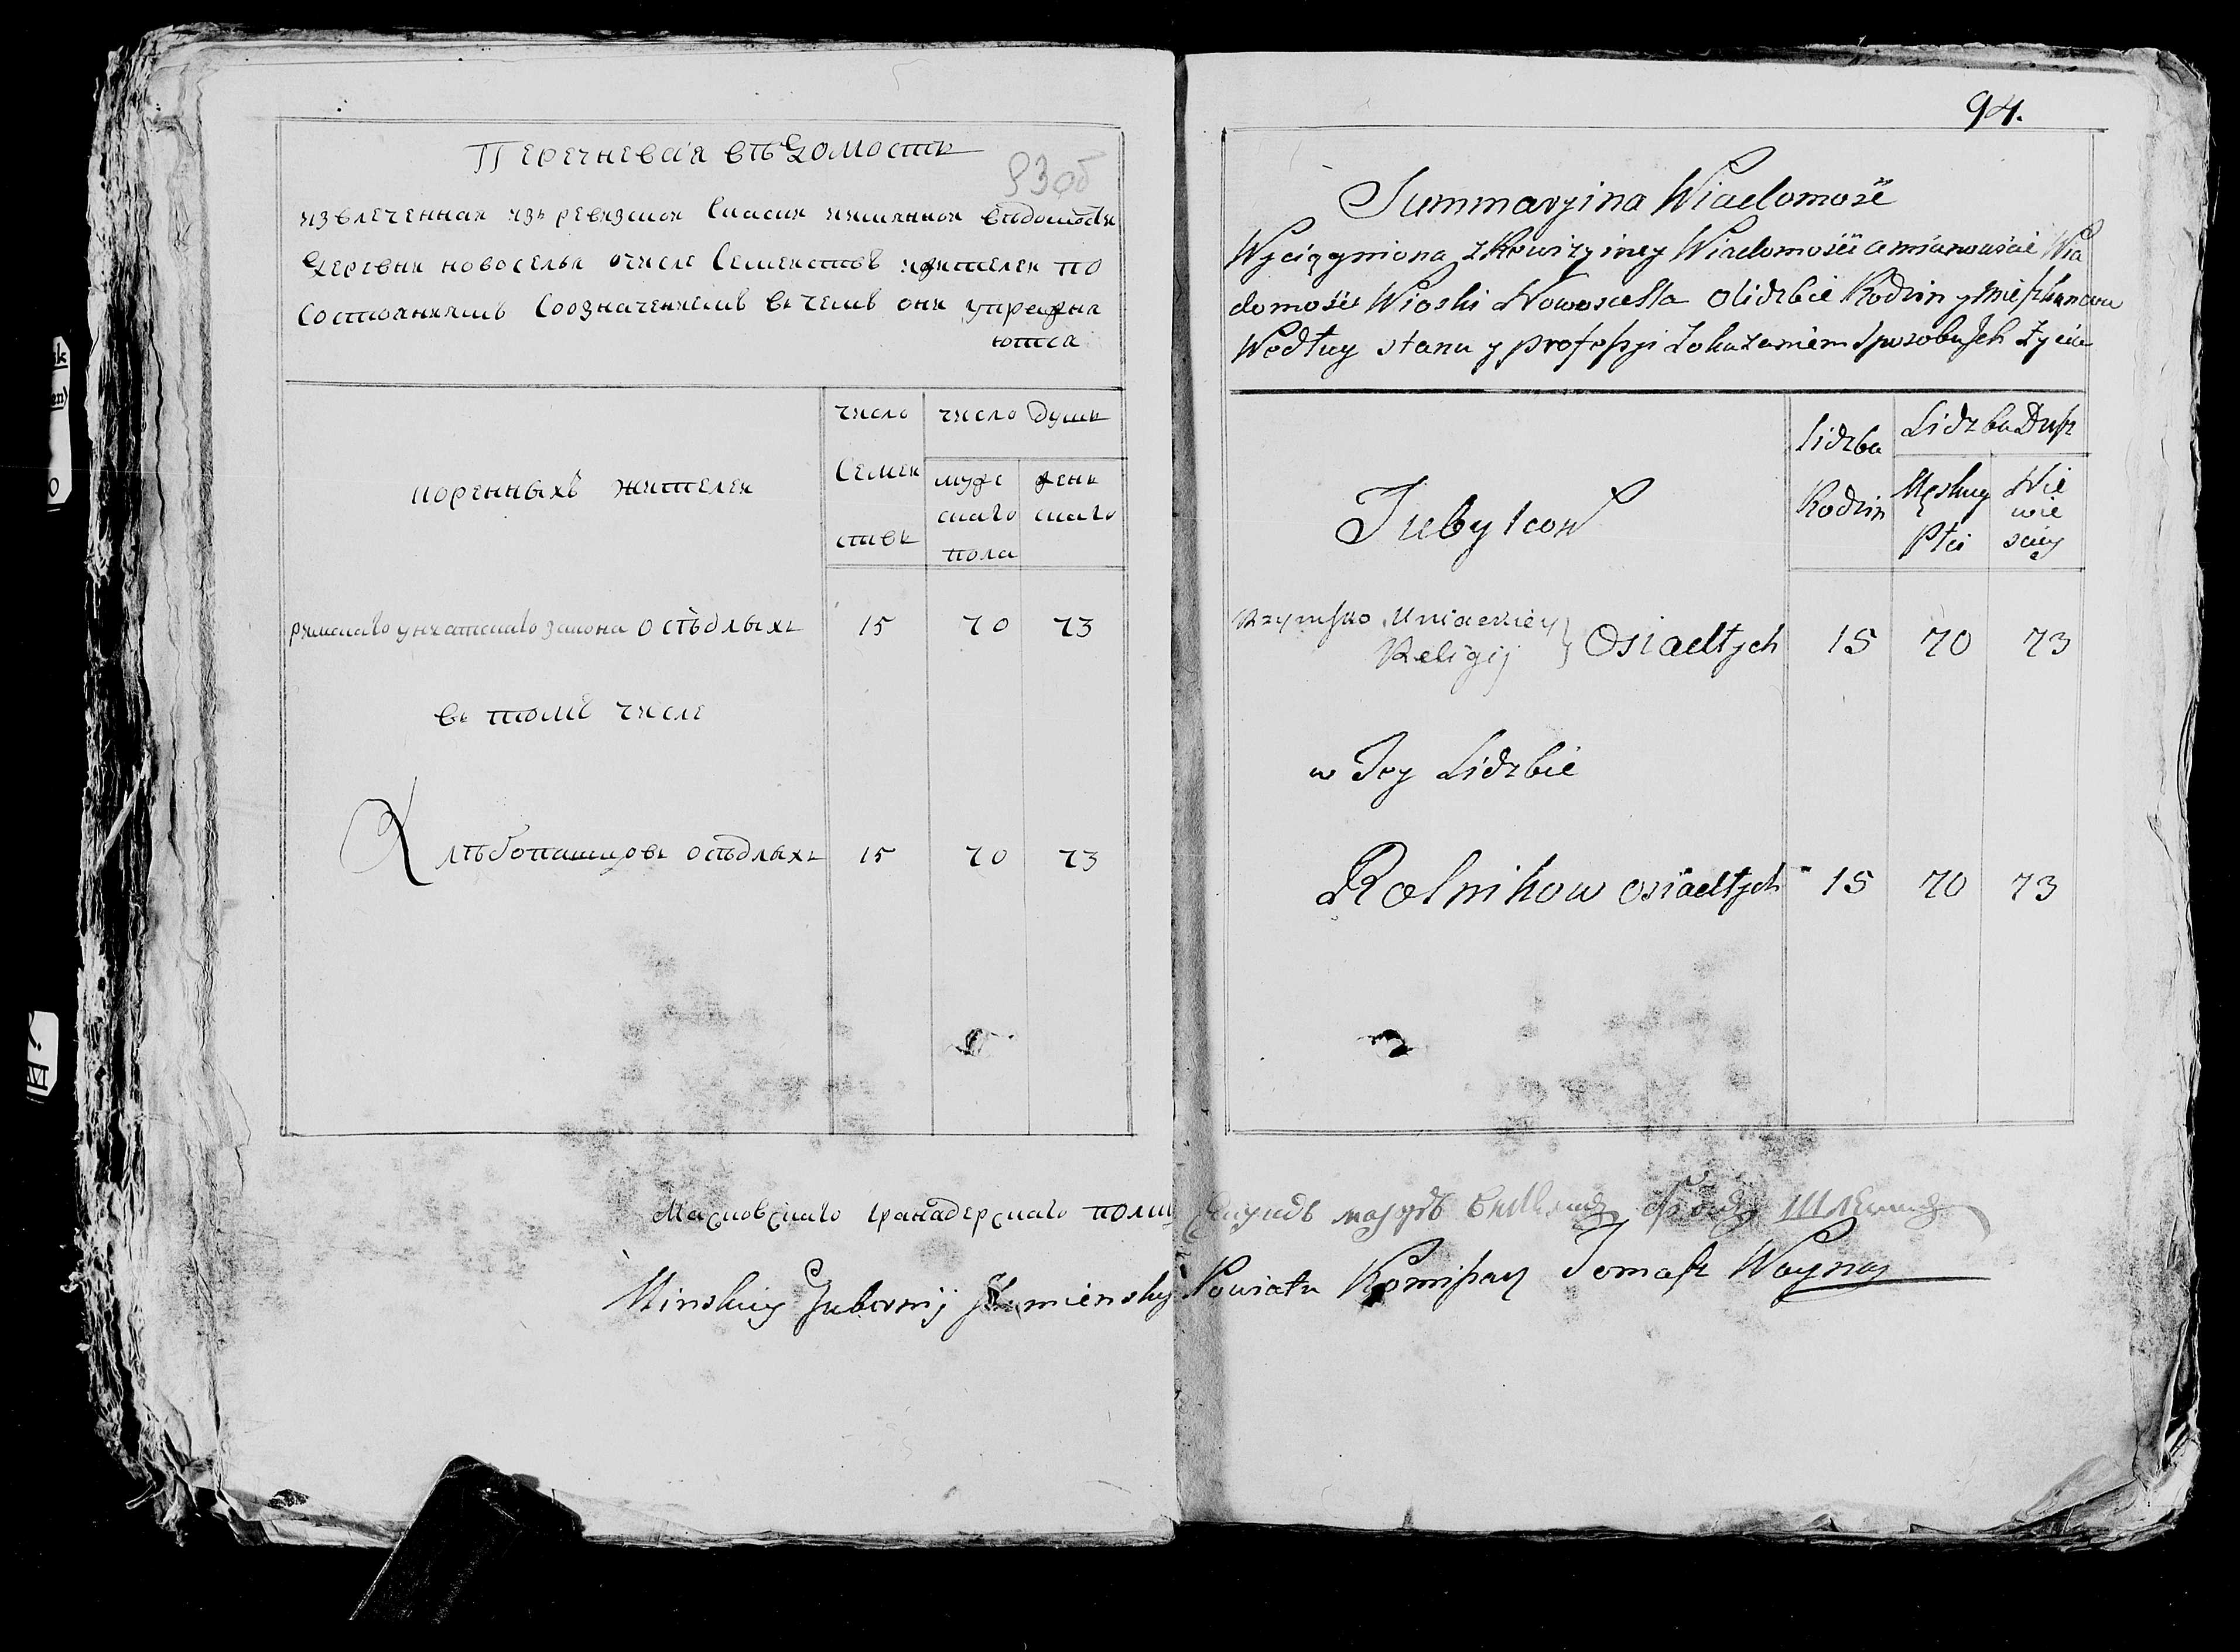 93об
Перечневая вѣдомость
извлеченная изъ ревизской сказки имянной вѣдомости
Деревни новоселья очисле Семействъ ижителей по
Состояниямъ Соозначениемъ въ чемъ они упражня
ются
коренныхъ жителей
число
Семей
ствъ
число душъ
муже
скаго
пола
жень
скаго
римскаго униатскаго закона осѣдлыхъ 15 70 73
въ томъ числе
Хлѣбопашцовъ осѣдлыхъ 15 70 73
94.
Summaryina Wiadomość
Wyciągniona z Rewizyiney Wiadomości a mianowicie Wia
domości Wioski Nowosiella o lidzbie Rodzin y Mieszkancow
Wedłuy stanu y professyi z okazaniem sposobu Jch Życia
Tubylcow
lidzba
Rodzin
Lidzba Dusz
Męskiey
Płci
Nie
wie
sciey
Rzymsko Uniackiey
Religij } Osiadłych 15 70 73
w Tey Lidzbie
Rolnikow osiadłych 15 70 73
Московскаго гранадерскаго полку Секундъ маіоръ
Minskiey Gubernij Powiatu Komissarz Tomasz Woyna